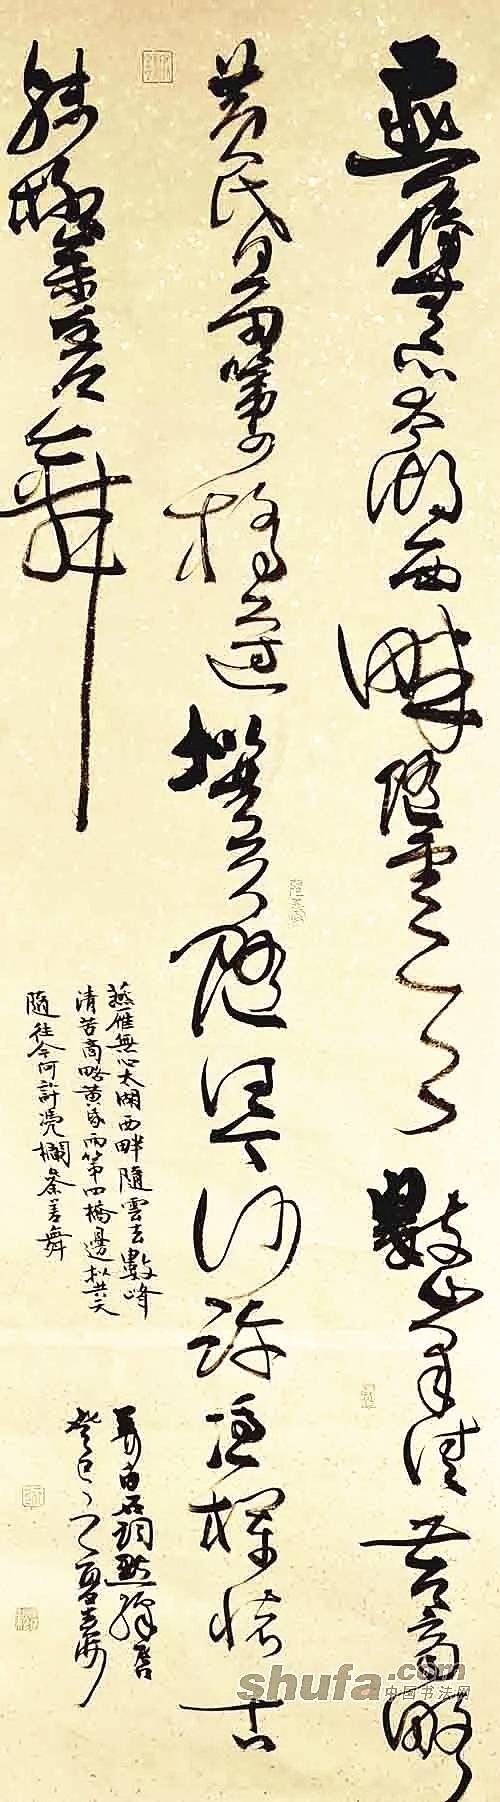 燕雁無心太湖西畔隨雲去數峰清苦商略
黄昏雨第四橋邊擬共天隨住今何許憑欄懷古
殘柳參差舞
燕雁無心太湖西畔隨雲去數峰
清苦商略黄昏雨第四橋邊拟共天
隨住今何許憑欄参差舞
姜白石詞點绛唇
癸巳之夏
shufa.com
中国书法网